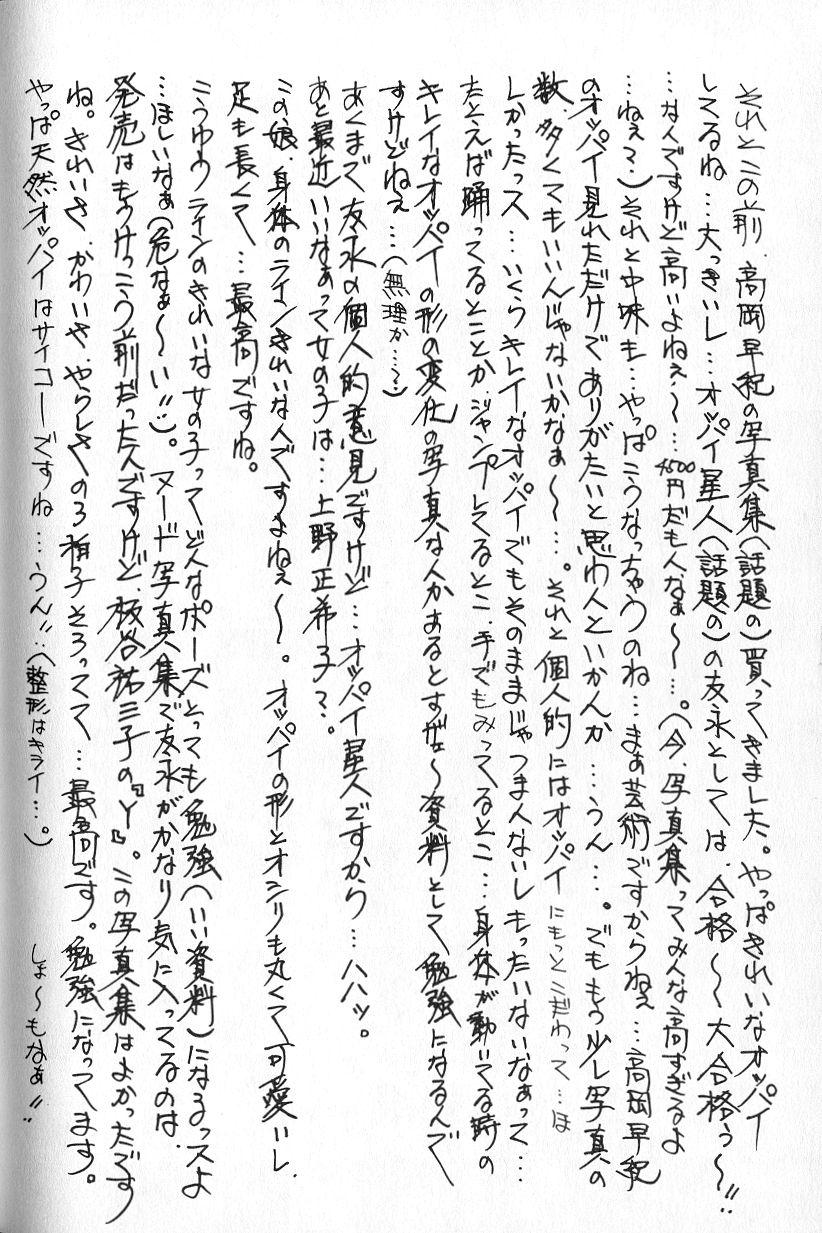 それとこの前、高岡早紀の写真集(話題の)買ってきました。やっぱきれいなオッパイ
してるね…大っきいし…オッパイ星人(話題の)の友永としては、合格〜〜大合格ぅ〜!!
…なんですけど高いよねぇ〜…4500円だもんなぁ〜〜…。(今、写真集ってみんな高すぎるよ
…ねぇ?)それと中味も…やっぱこうなっちゃうのね…まぁ芸術ですからねぇ…高岡早紀
のオッパイ見れただけでありがたいと思わんといかんか…うん…。でももう少し写真の
数、多くてもいいんじゃないかなぁ〜〜…。それと個人的にはオッパイにもっとこだわって…ほ
しかったっス…いくらキレイなオッパイでもそのままじゃつまんないしもったいないなぁって…
たとえば踊ってるとことか、ジャンプしてるとこ、手でもみってるとこ…身体が動いてる時の
キレイなオッパイの形の変化の写真なんかあるとすげェ〜資料として勉強になるんで
すけどねぇ…(無理か…?)
あくまで友永の個人的意見ですけど…オッパイ星人ですから…ハハッ。
あと最近いいなぁって女の子は…上野正希子?。
この娘、身体のラインきれいなんですよねぇ〜。オッパイの形とオシリも丸くて可愛いし、
足も長くて…最高ですね。
こうゆうラインのきれいな女の子ってどんなポーズとっても勉強(いい資料)になるっスよ
…ほしいなぁ(危なぁ〜〜い!!)。ヌード写真集で友永がかなり気に入ってるのは、
発売はもうけっこう前だったんですけど、板谷祐三子の『Y』。この写真集はよかったです
ね。きれいさ、かわいさ、やらしさの3拍子そろってて…最高です。勉強になってます。
やっぱ天然オッパイはサイコーですね…うん!!(整形はキライ…。)
しょ〜もなぁ!!